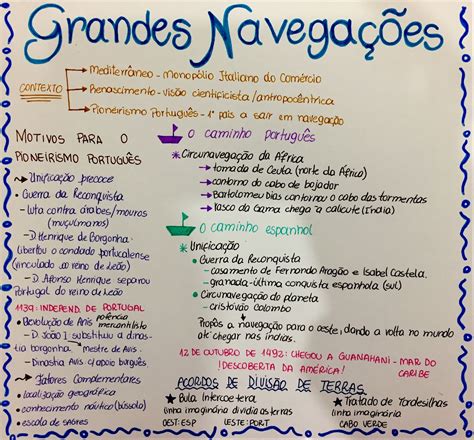 Grandes Navegações
CONTEXTO
→ Mediterrâneo - Monopólio Italiano do Comércio
→ Renascimento - visão cientificista / antropocêntrica
→ Pioneirismo Português - 1º país a sair em navegação
MOTIVOS PARA O
PIONEIRISMO PORTUGUÊS
→ Unificação precoce
• Guerra da Reconquista
- luta contra árabes/mouros
(muçulmanos)
- D. Henrique de Borgonha
libertou o condado portucalense
(vinculado ao reino de Leão)
- D. Afonso Henrique separou
Portugal do reino de Leão
1139: INDEPEND. DE PORTUGAL
• Revolução de Avis potência mercantilista
- D. João I substituiu a dinas-
tia borgonha. → mestre de Avis
- Dinastia Avis: apoio burguês
→ Fatores Complementares
• localização geográfica
• conhecimento náutico (bússola)
• escola de sagres
O caminho português
* Circunavegação da África
→ tomada de Ceuta (norte da África)
→ contorno do cabo de bojador
→ Bartolomeu Dias contornou o cabo das tormentas
→ Vasco da Gama chega a calicute (Índia)
O caminho espanhol
* Unificação
• Guerra da Reconquista
- casamento de Fernando Aragão e Isabel Castela.
- granada - última conquista espanhola (sul)
• Circunavegação do planeta
- cristóvão Colombo
↳ Propôs a navegação para o oeste, dando a volta no mundo
até chegar nas índias.
12 DE OUTUBRO DE 1492: CHEGOU A GUANAHANI - MAR DO
CARIBE
!DESCOBERTA DA AMÉRICA!
ACORDOS DE DIVISÃO DE TERRAS
* Bula Intercoetera
linha imaginária dividia as terras
OEST: ESP LESTE: PORT
* Tratado de Tordesilhas
linha imaginária
CABO VERDE